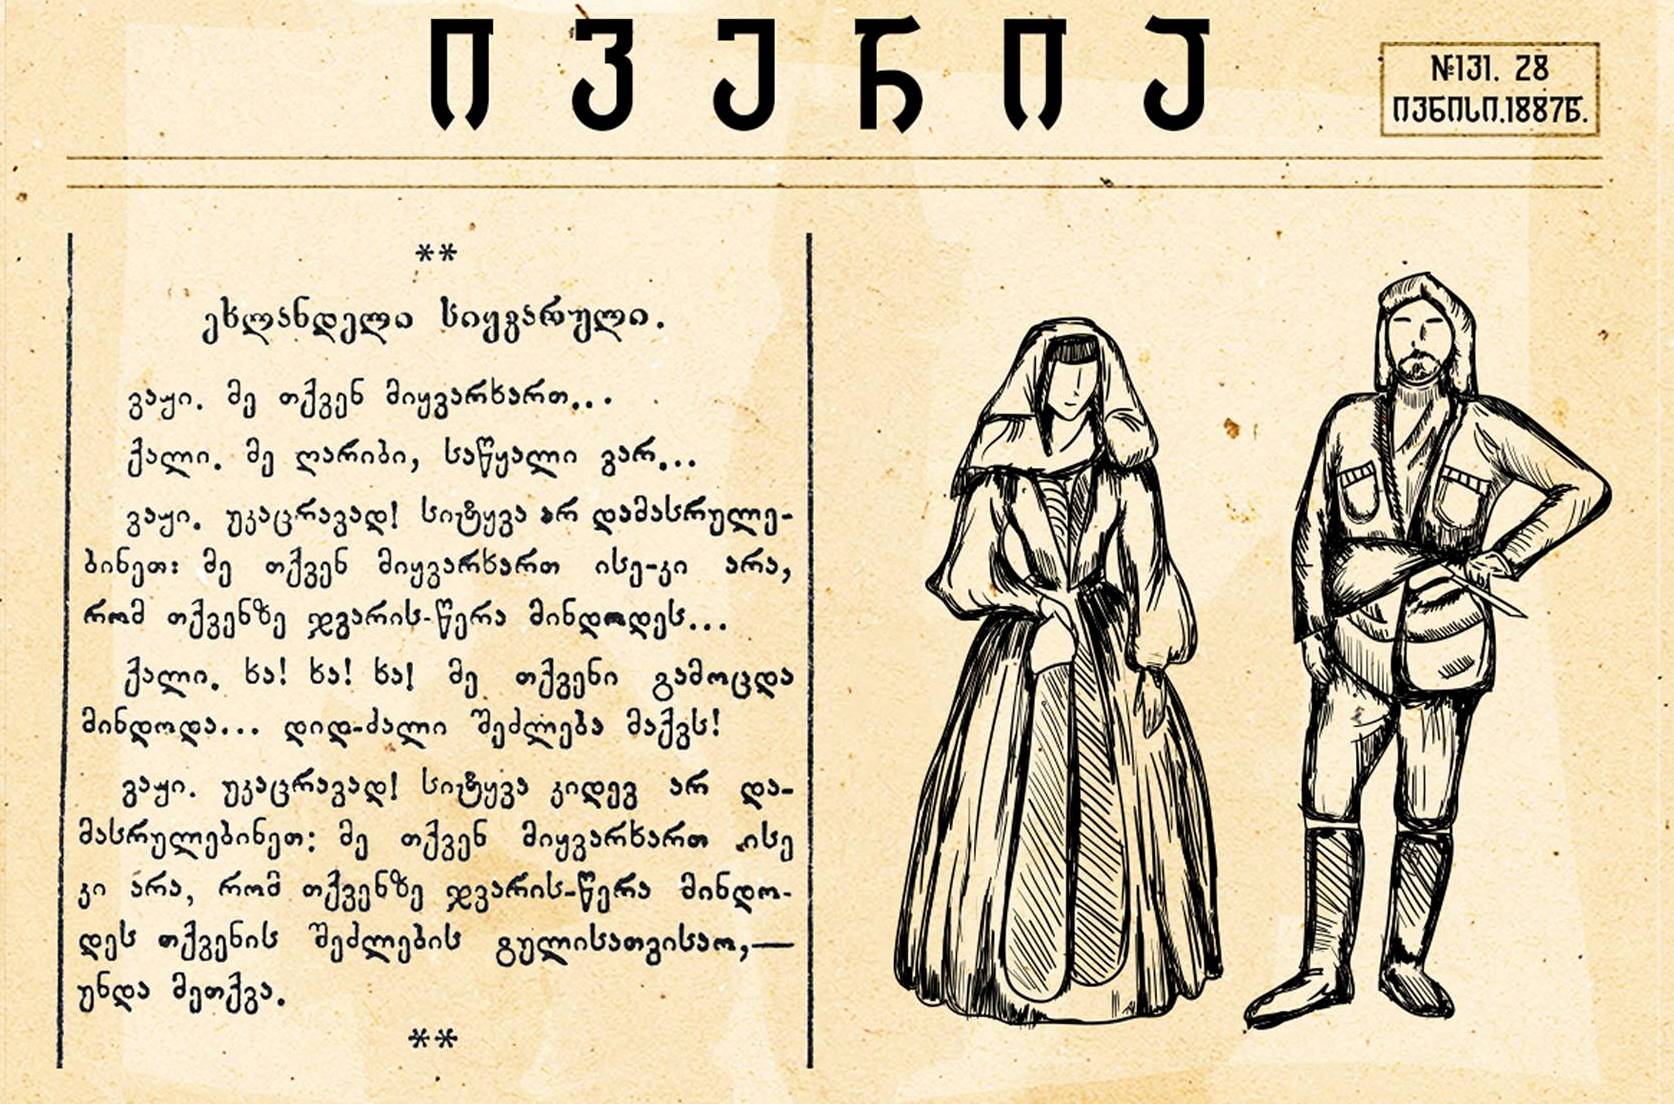 ივერია
№131. 28
ივნისი.1887წ.
**
ეხლანდელი სიყვარული.
ვაჟი. მე თქვენ მიყვარხართ...
ქალი. მე ღარიბი, საწყალი ვარ...
ვაჟი. უკაცრავად! სიტყვა არ დამასრულე-
ბინეთ: მე თქვენ მიყვარხართ ისე-კი არა,
რომ თქვენზე ჯვარის-წერა მინდოდეს...
ქალი. ხა! ხა! ხა! მე თქვენი გამოცდა
მინდოდა... დიდ-ძალი შეძლება მაქვს!
ვაჟი. უკაცრავად! სიტყვა კიდევ არ და-
მასრულებინეთ: მე თქვენ მიყვარხართ ისე
კი არა, რომ თქვენზე ჯვარის-წერა მინდო-
დეს თქვენის შეძლების გულისათვისაო,—
უნდა მეთქვა.
**